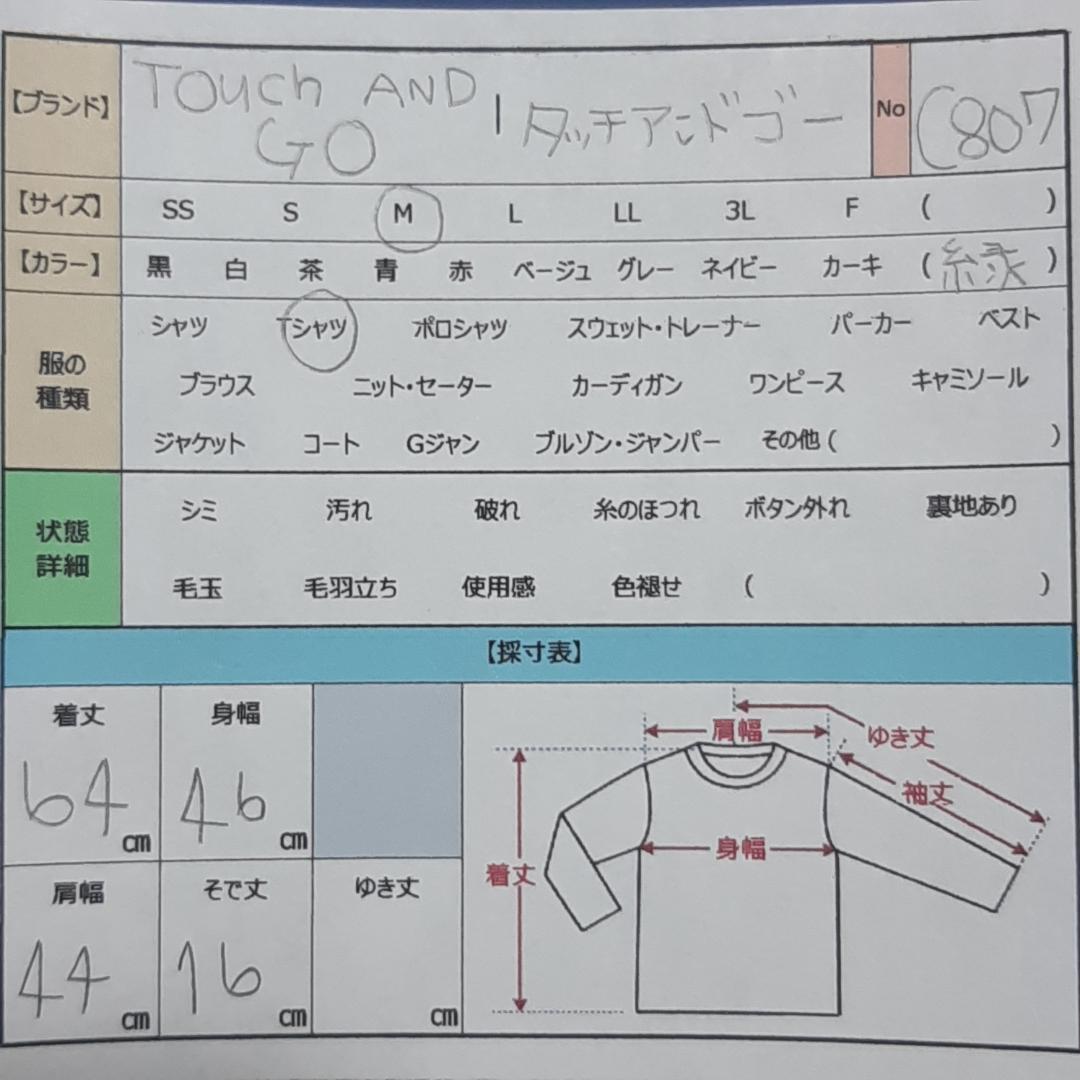 【ブランド】 TOUCh AND GO | タッチアンドゴー No C807
【サイズ】 SS S M L LL 3L F ( )
【カラー】 黒 白 茶 青 赤 ベージュ グレー ネイビー カーキ (緑)
服の種類
シャツ Tシャツ ポロシャツ スウェット・トレーナー パーカー ベスト
ブラウス ニット・セーター カーディガン ワンピース キャミソール
ジャケット コート Gジャン ブルゾン・ジャンパー その他 ( )
状態詳細
シミ 汚れ 破れ 糸のほつれ ボタン外れ 裏地あり
毛玉 毛羽立ち 使用感 色褪せ ( )
【採寸表】
着丈 身幅
64cm 46cm
肩幅 そで丈 ゆき丈
44cm 16cm cm
肩幅 ゆき丈
袖丈
身幅
着丈